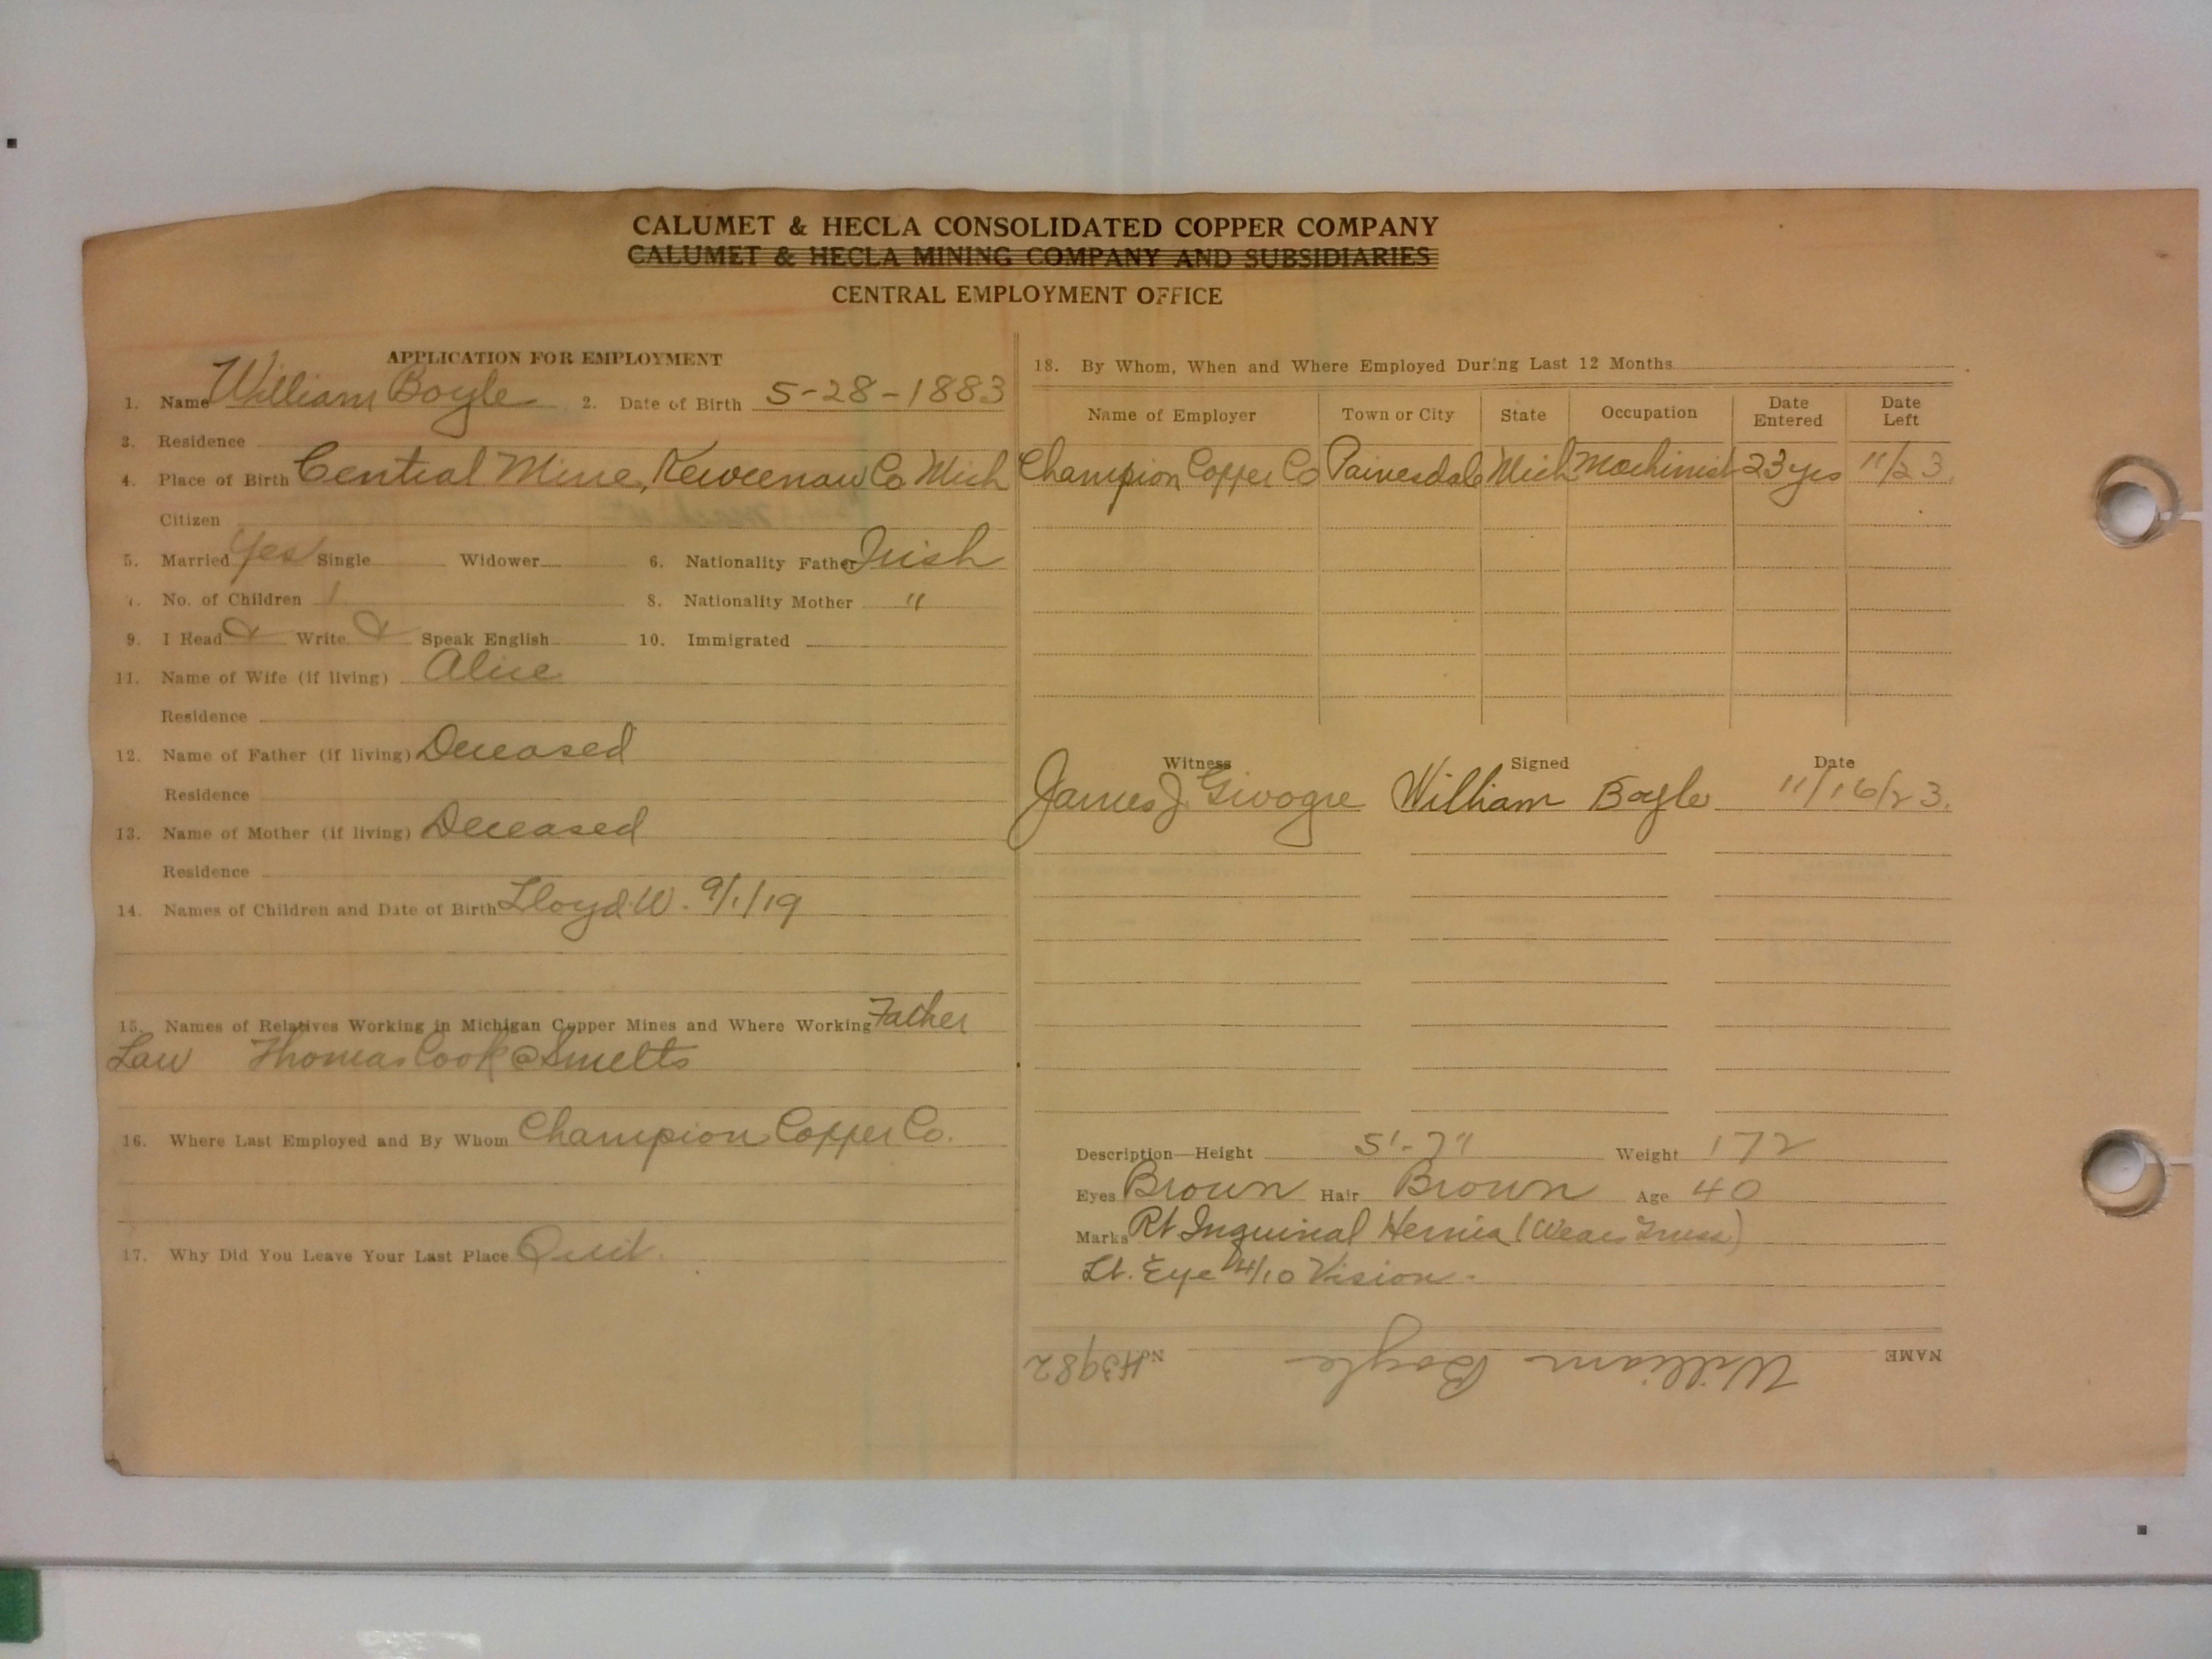 CALUMET & HECLA CONSOLIDATED COPPER COMPANY
CALUMET & HECLA MINING COMPANY AND SUBSIDIARIES
CENTRAL EMPLOYMENT OFFICE
APPLICATION FOR EMPLOYMENT
1. Name William Boyle 2. Date of Birth 5-28-1883
3. Residence
4. Place of Birth Central Mine, Keweenaw Co Mich
Citizen
5. Married Yes Single Widower 6. Nationality Father Irish
7. No. of Children 1 8. Nationality Mother "
9. I Read Write Speak English 10. Immigrated
11. Name of Wife (if living) Alice
Residence
12. Name of Father (if living) Deceased
Residence
13. Name of Mother (if living) Deceased
Residence
14. Names of Children and Date of Birth Lloyd W. 9/1/19
15. Names of Relatives Working in Michigan Copper Mines and Where Working Father
Law Thomas Cook @ Smelts
16. Where Last Employed and By Whom Champion Copper Co.
17. Why Did You Leave Your Last Place Quit.
18. By Whom, When and Where Employed During Last 12 Months
Name of Employer Town or City State Occupation Date Entered Date Left
Champion Copper Co Painesdale Mich Machinist 23 yrs 11/23.
Witness Signed Date
James J. William Boyle 11/16/23.
Description—Height 5'-7" Weight 172
Eyes Brown Hair Brown Age 40
Marks Rt Inguinal Hernia (Wears Truss)
Lt. Eye 4/10 Vision.
NAME William Boyle No. H3982